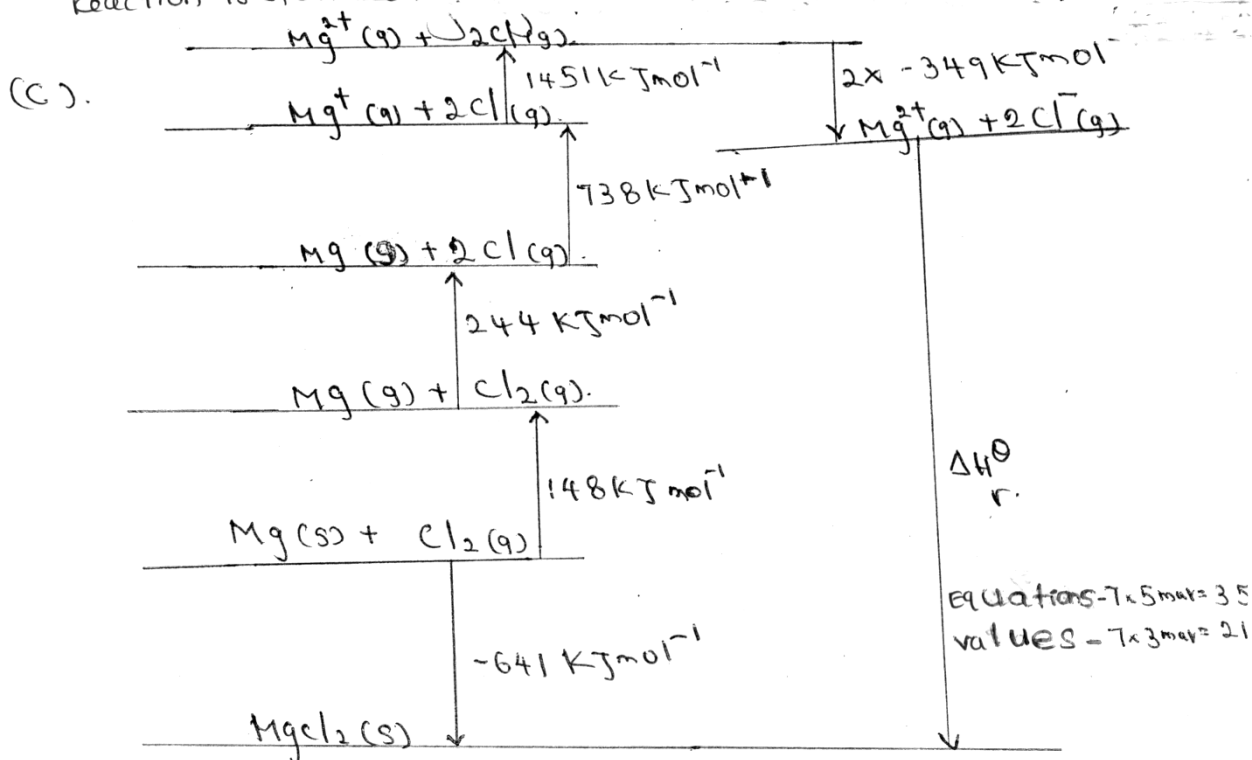 Mg²⁺(g) + 2Cl(g).
(C).
1451 kJmol⁻¹
2x -349KJmol⁻
Mg⁺(g) + 2Cl(g).
Mg²⁺(g) + 2Cl⁻(g)
738KJmol⁺¹
Mg (g) + 2Cl(g).
244 KJmol⁻¹
Mg (g) + Cl₂(g).
148KJ mol⁻¹
ΔH⊖
r.
Mg(s) + Cl₂(g)
Equations-7x5mar=35
values - 7x3mar=21
-641 KJmol⁻¹
MgCl₂(s)